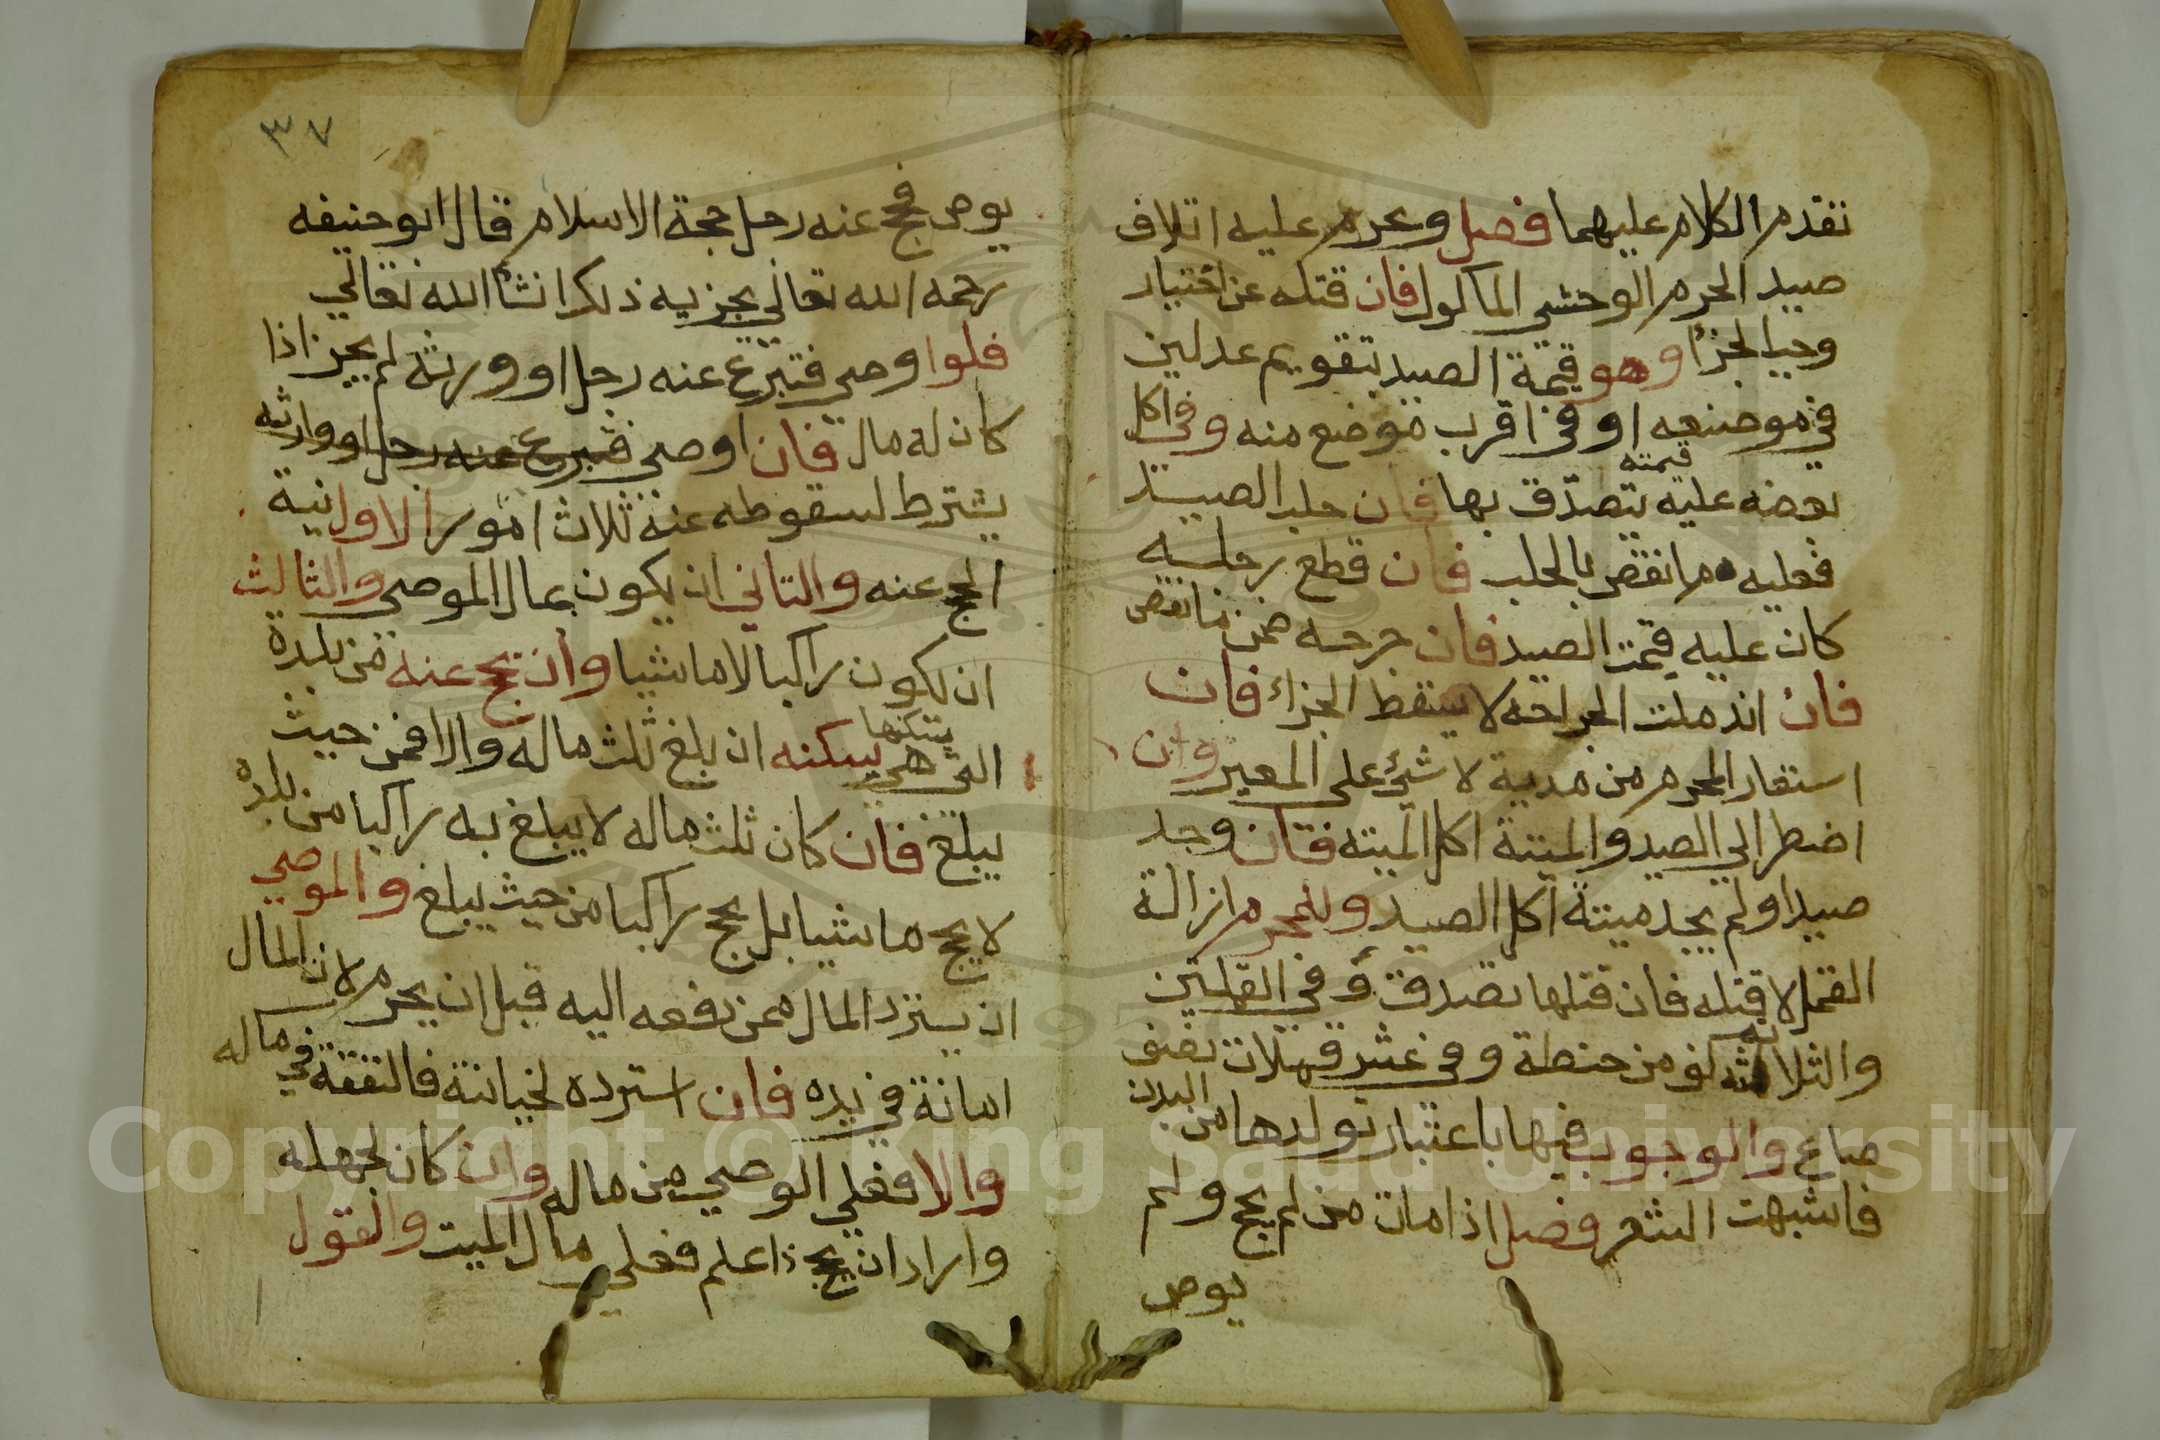 تقدم الكلام عليهما فصل ويحرم عليه اتلاف
صيد الحرم الوحشي الماكول فان قتله عن اختيار
وجب الجزأ وهو قيمة الصيد بتقويم عدلين
في موضعه او في اقرب موضع منه وفي اكل
بعضه عليه قيمته يتصدق بها فان حلب الصيد
فعليه ما نقص بالحلب فان قطع رجليه
كان عليه قيمت الصيد فان جرحه ضمن ما نقص
فان اندملت الجراحه لا يسقط الجزاء فان
استعار المحرم من مدية لا شيئ على المعير وان
اضطر الى الصيد والميتة اكل الميته فان وجد
صيدا ولم يجد ميتة اكل الصيد وللمحرم ازالة
القمل لا قتله فان قتلها تصدق وفي القملتين
والثلاثة كف من حنطة وفي عشر قملات نصف
صاع والوجوب فيها باعتبار تولدها من البدن
فاشبهت الشعر فصل اذا مات من لم يحج ولم
يوص
٣٧
يوص فحج عنه رجل حجة الاسلام قال ابو حنيفه
رحمه الله تعالى يجزيه ذلك انشأ الله تعالى
فلو اوصى فتبرع عنه رجل او ورثه لم يجز اذا
كان له مال فان اوصى فتبرع عنه رجل او وارثه
يشترط لسقوطه عنه ثلاث امور الاول نية
الحج عنه والثاني ان يكون بمال الموصي والثالث
ان يكون راكبا لا ماشيا وان يحج عنه من بلدة
التي هي يسكنها يسكنه ان بلغ ثلث ماله والا فمن حيث
يبلغ فان كان ثلث ماله لا يبلغ به راكبا من بلده
لا يحج ماشيا بل يحج راكبا من حيث يبلغ والموصي
ان يسترد المال ممن دفعه اليه قبل ان يحرم لان المال
امانة في يده فان استرده لخيانته فالنفقة في ماله
والا فعلى الوصي من ماله وان كان لجهله
واراد ان يحج ذا علم فعلى مال الميت والقول
Copyright © King Saud University